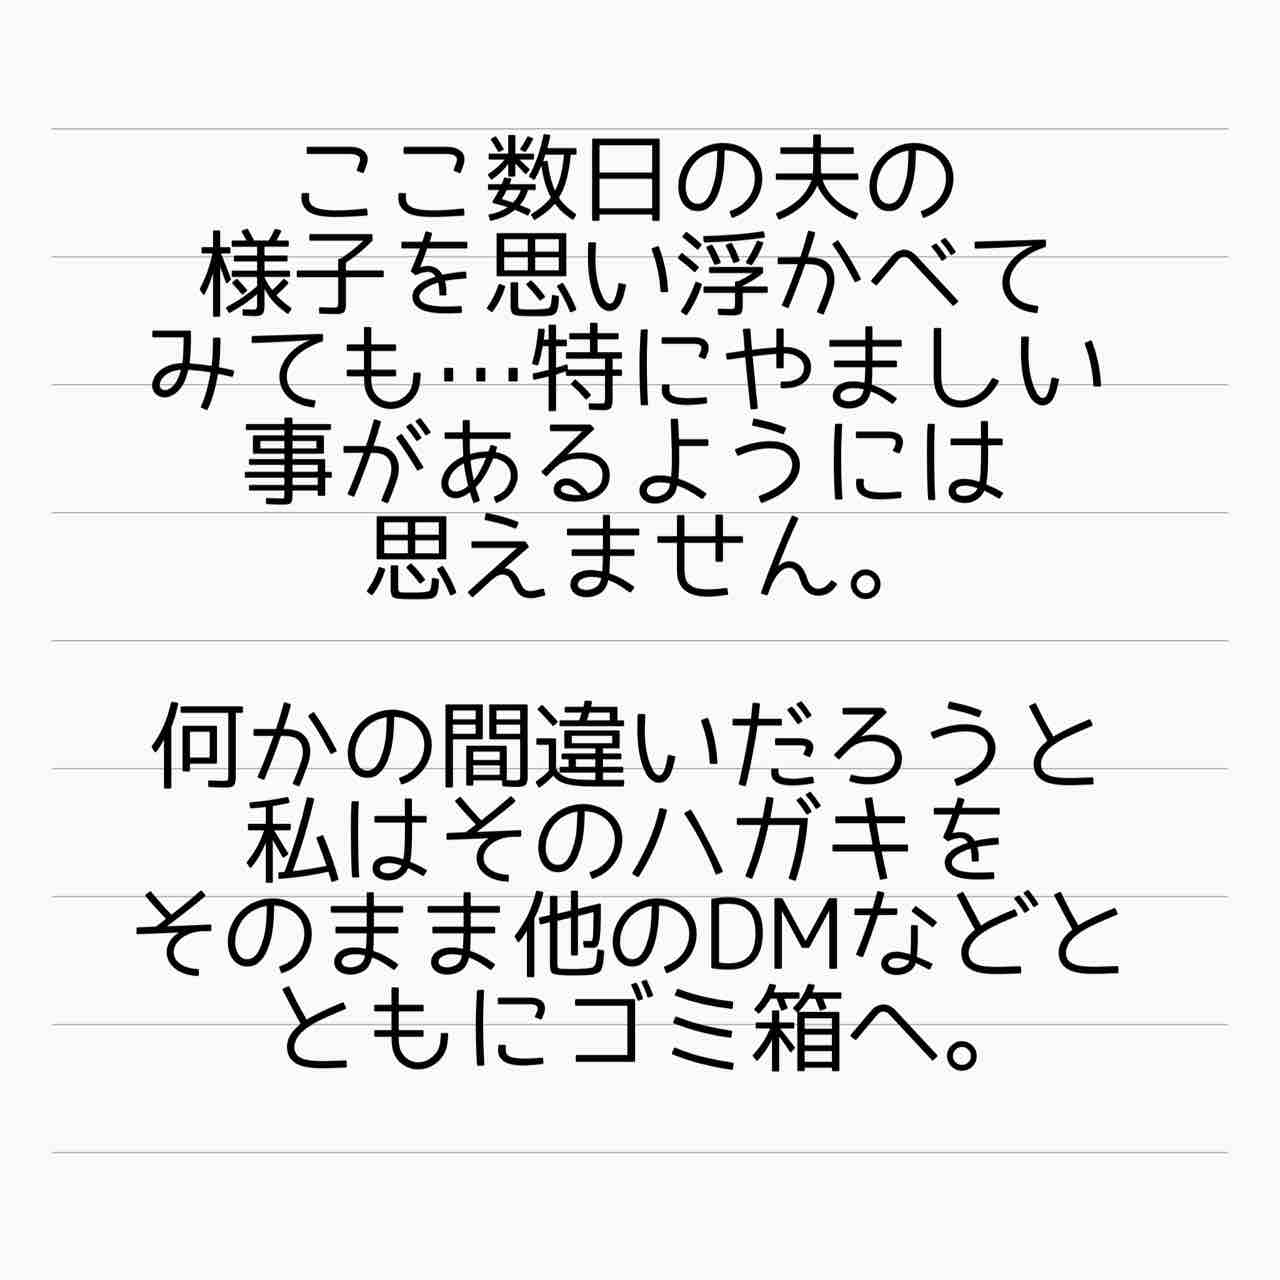 ここ数日の夫の
様子を思い浮かべて
みても…特にやましい
事があるようには
思えません。
何かの間違いだろうと
私はそのハガキを
そのまま他のDMなどと
ともにゴミ箱へ。